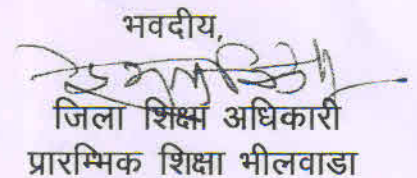 भवदीय,
जिला शिक्षा अधिकारी
प्रारम्भिक शिक्षा भीलवाडा